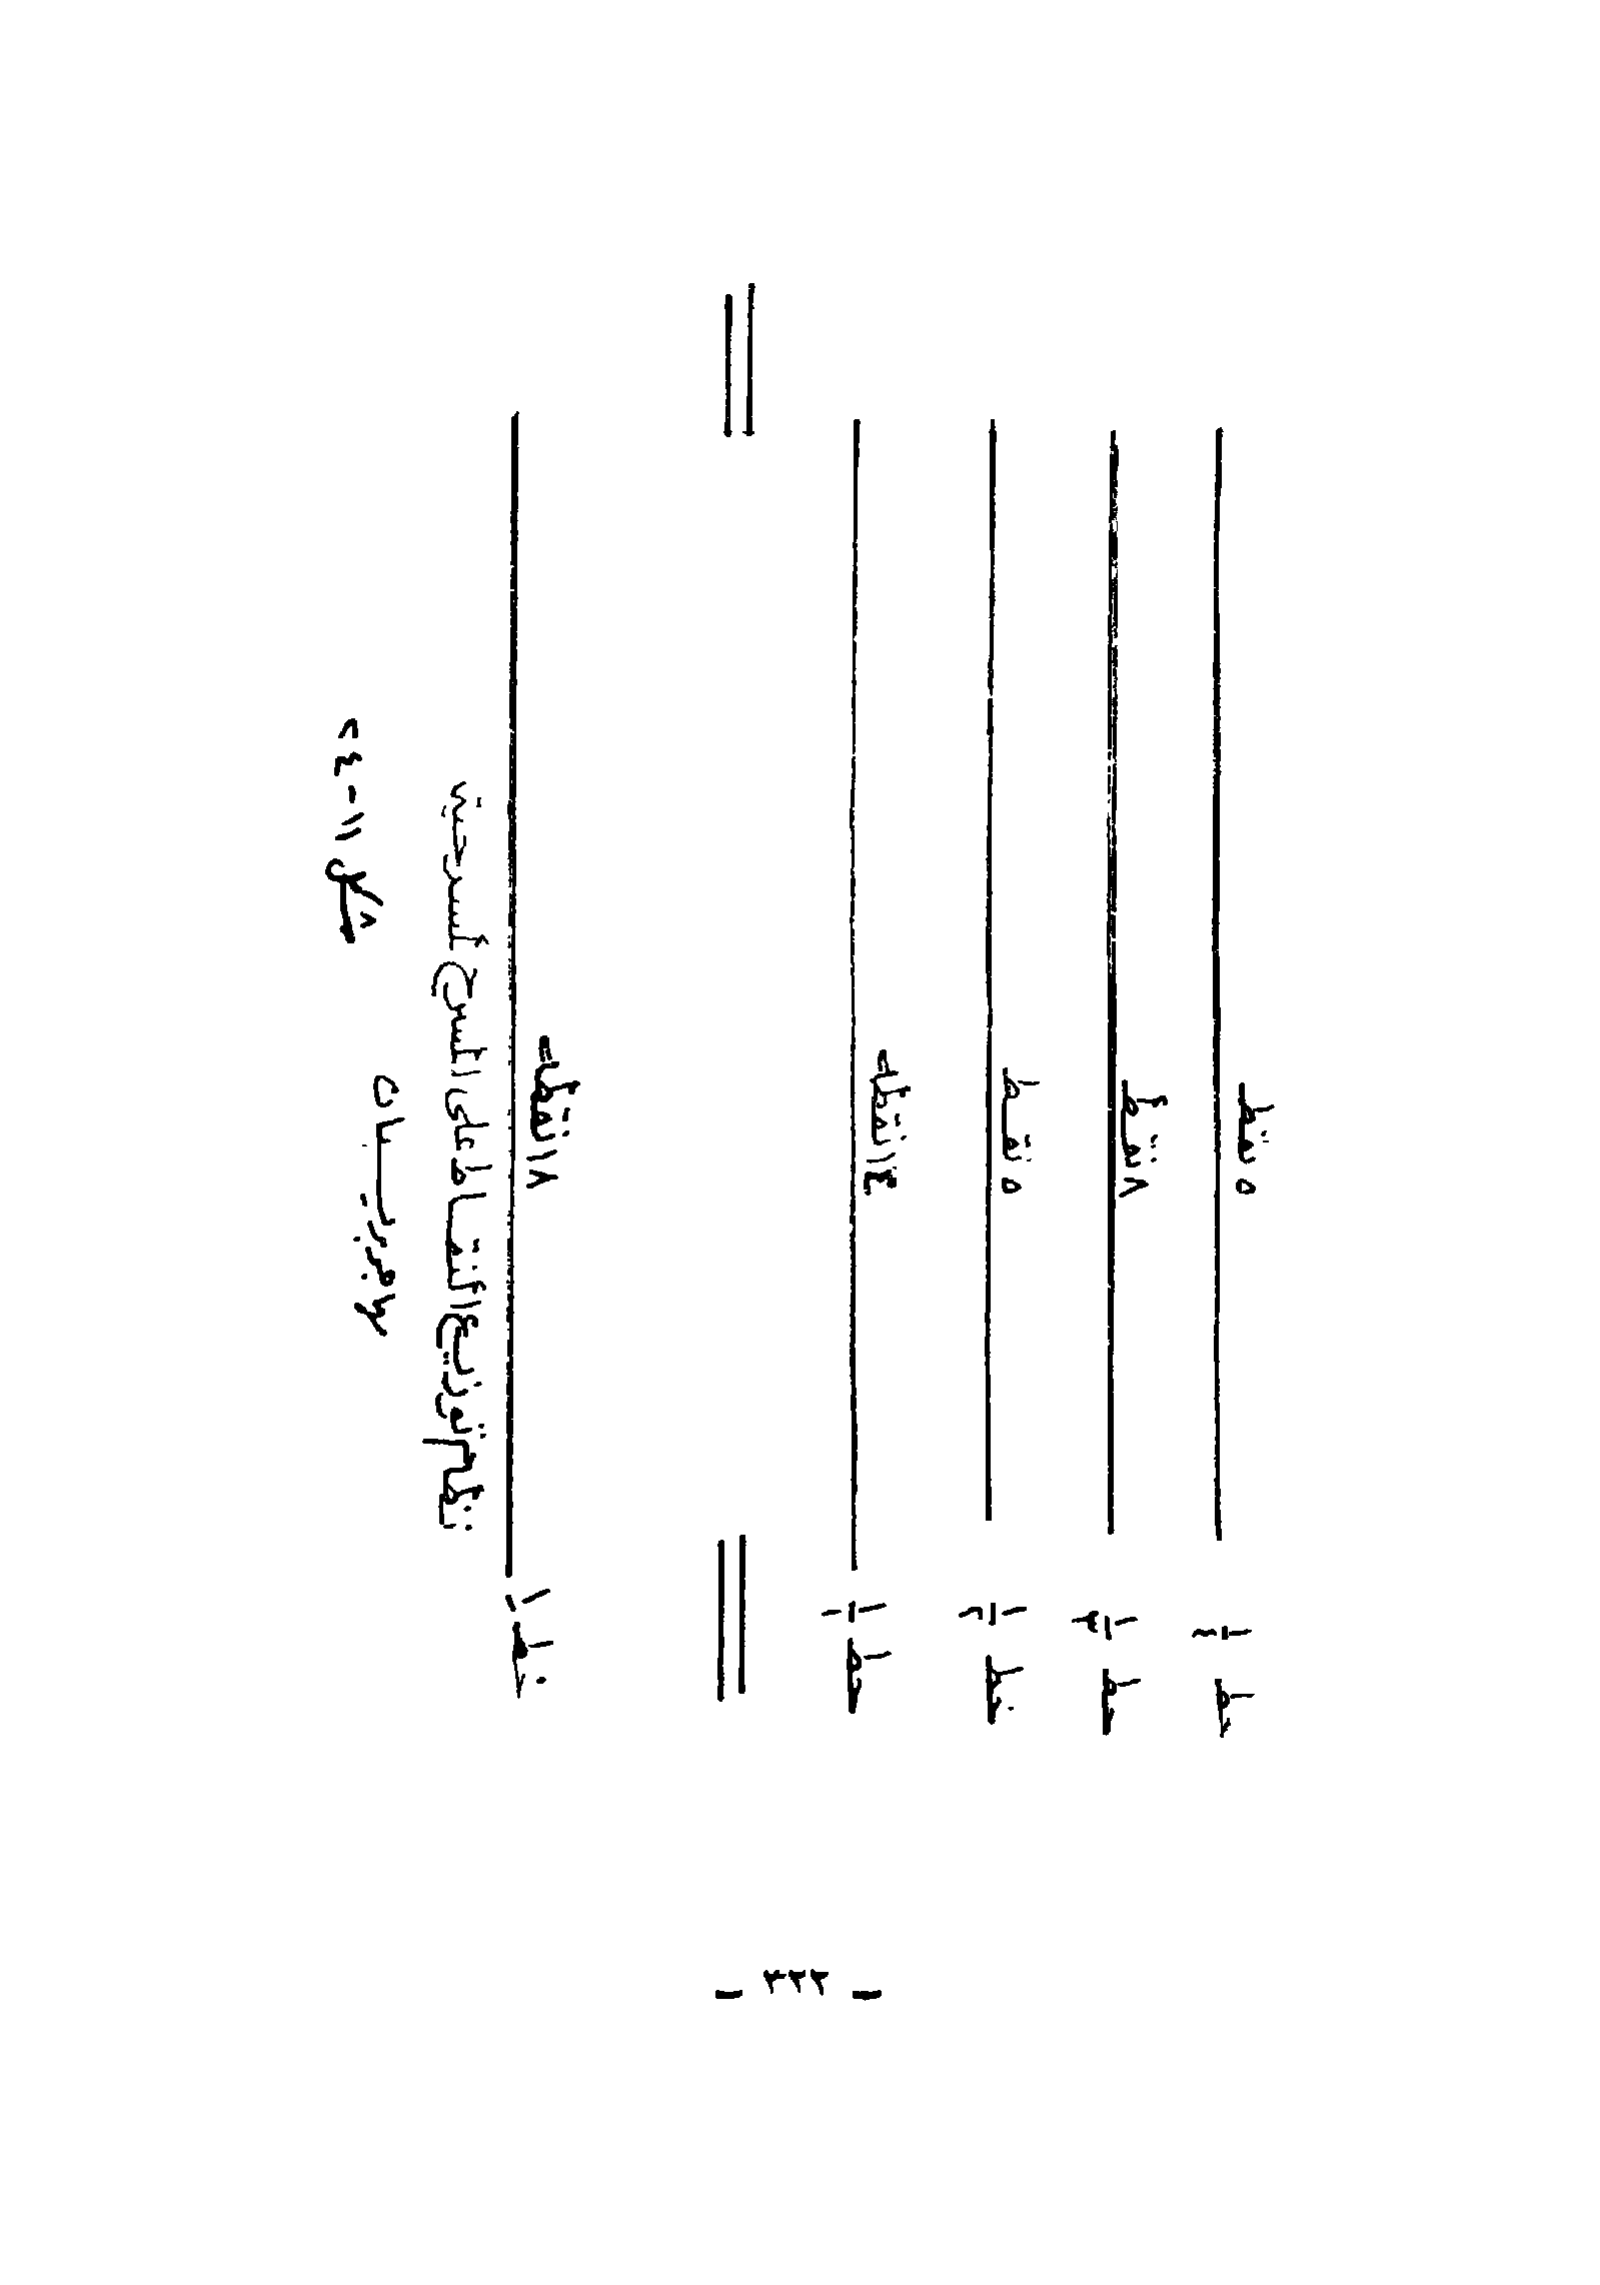 خط ١/٤ ٥ نقط
خط ١/٣ ٨ نقط
خط ١/٢ ٥ نقط
خط ١/١ ١٤ نقطة
خط ١ ١٨ نقطة
تنظيم توزيع النقاط على المسرح لمسرحية
شكل ١١-٢٤
- ٢٢٢ -